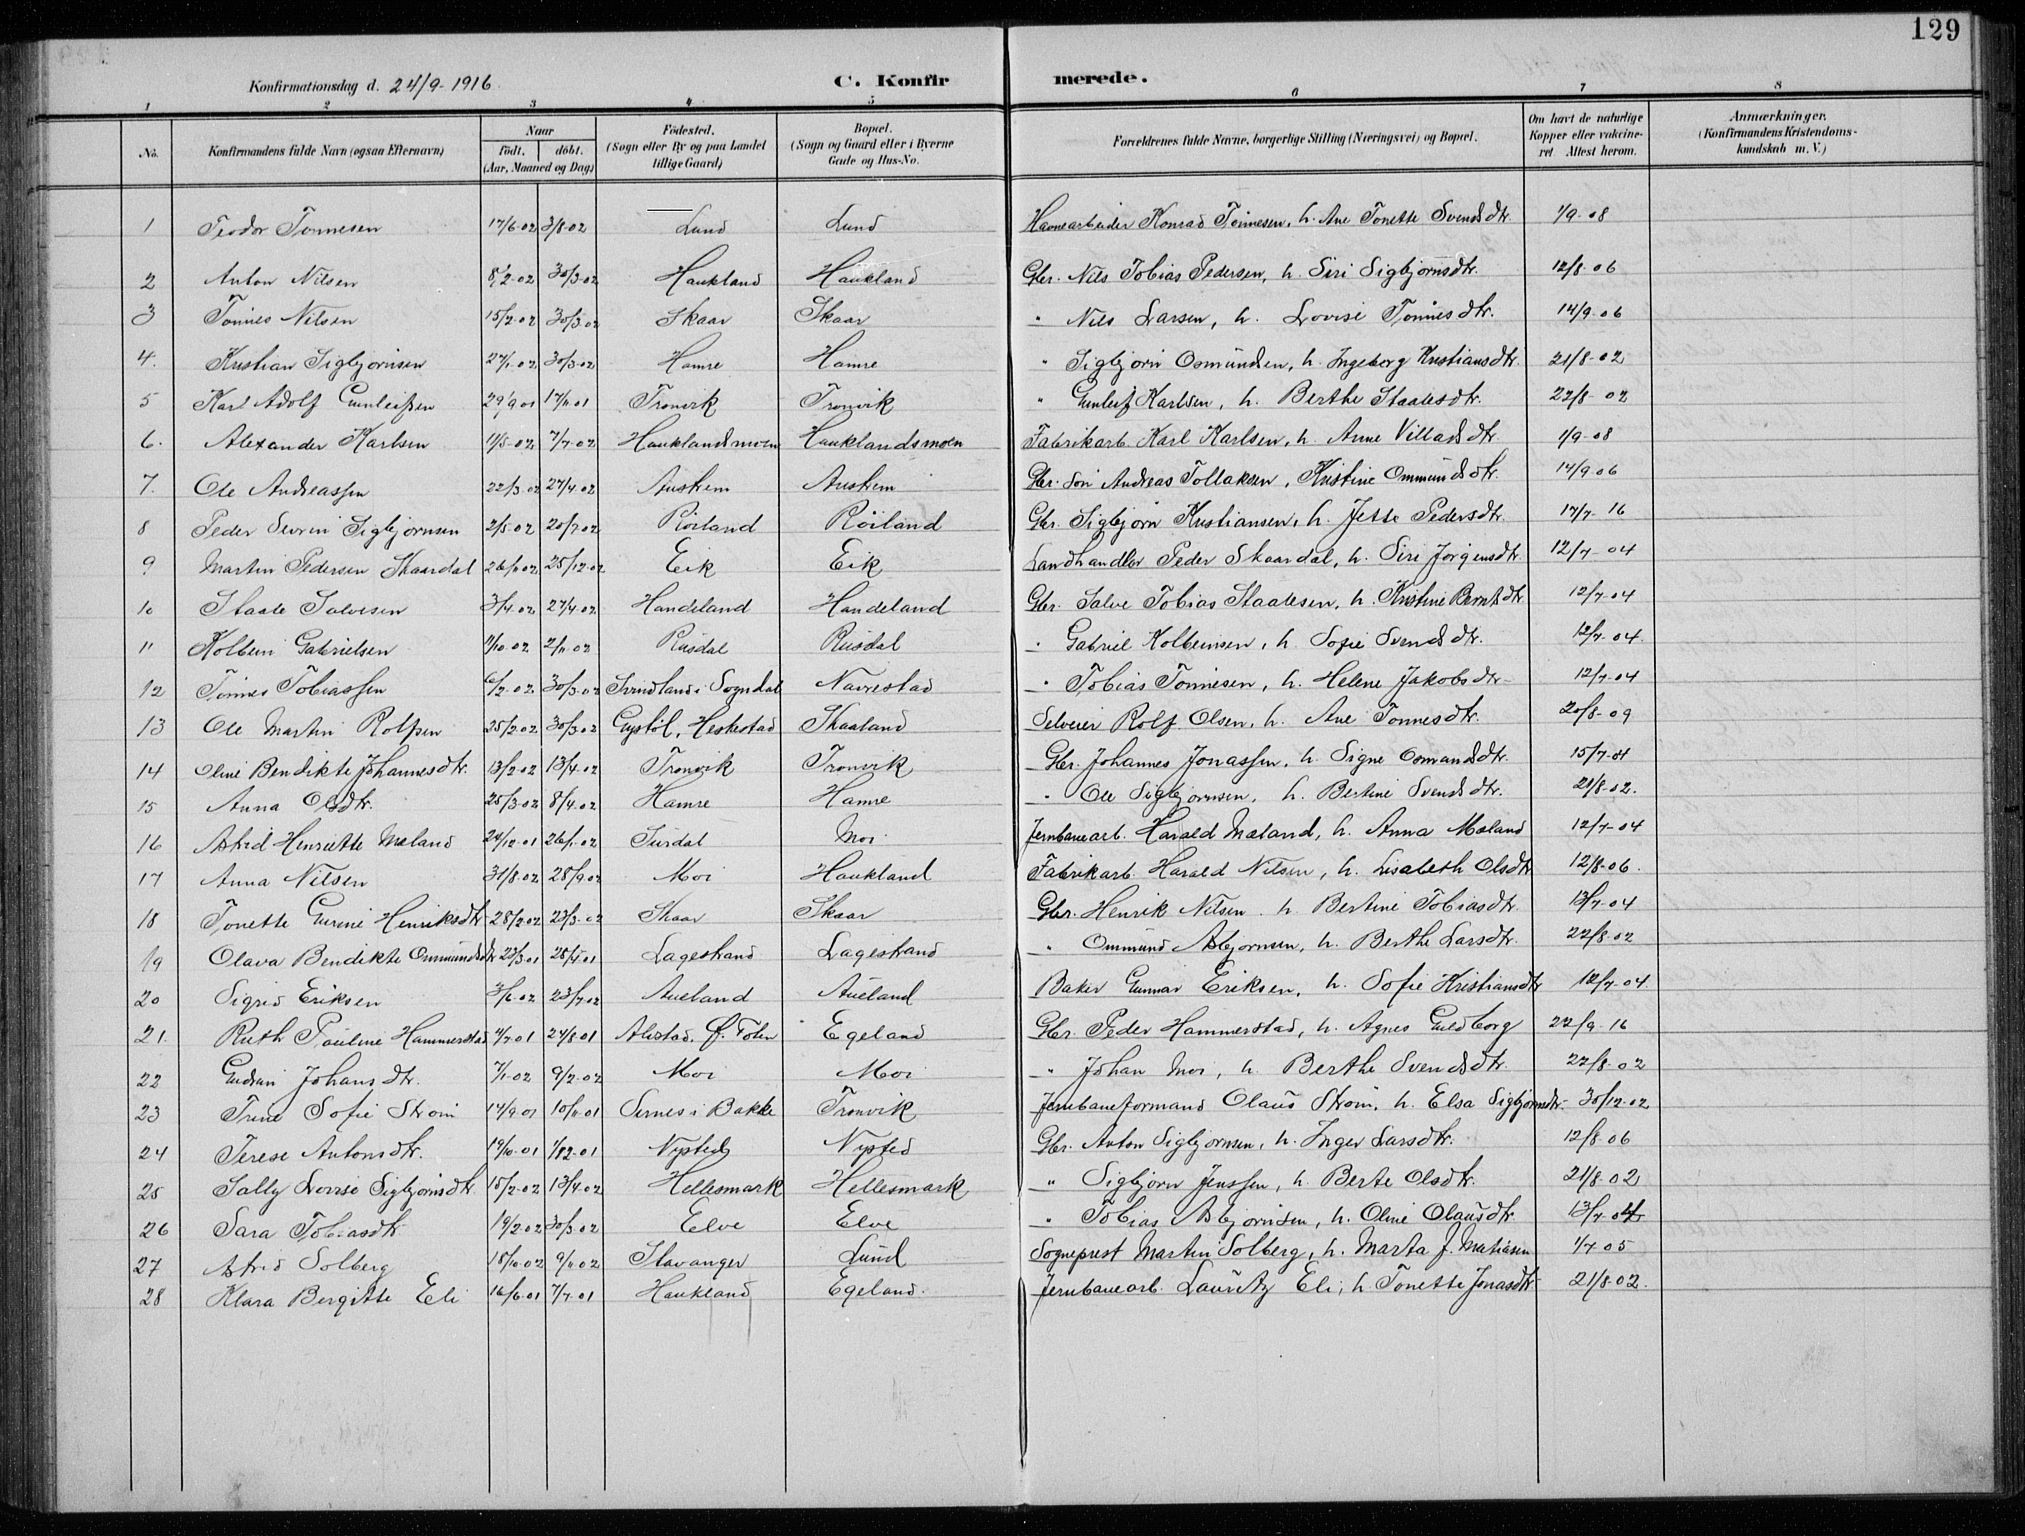 129
Konfirmationsdag d. 24/9-1916.
C. Konfirmerede.
1 2 3 4 5 6 7 8
No. Konfirmandens fulde Navn (ogsaa Efternavn) Naar födt. döbt. (Aar, Maaned og Dag) Födested. (Sogn eller By og paa Landet tillige Gaard) Bopæl. (Sogn og Gaard eller i Byerne Gade og Hus-No. Forældrenes fulde Navne, borgerlige Stilling (Næringsvei) og Bopæl. Om havt de naturlige Kopper eller vakcineret. Attest herom. Anmærkninger. (Konfirmandens Kristendomskundskab m. V.)
1 Teodor Tønnesen 17/6-02 3/8-02 Lund Lund Havnearbeider Konrad Tønnesen, h. Ane Tonette Svendsdtr. 1/9-08
2 Anton Nilsen 8/2-02 30/3-02 Haukland Haukland Gbr. Nils Tobias Pedersen, h. Siri Sigbjørnsdtr. 12/8-06
3 Tønnes Nilsen 15/2-02 30/3-02 Skaar Skaar " Nils Larsen, h. Lovise Tønnesdtr. 14/9-06
4. Kristian Sigbjørnsen 27/1-02 30/3-02 Hamre Hamre " Sigbjørn Osmundsen, h. Ingeborg Kristiansdtr. 21/8-02
5 Karl Adolf Gunleifsen 29/9 01 17/11 01 Tronvik Tronvik " Gunleif Karlsen, h. Berthe Staalesdtr. 22/8-02
6. Alexander Karlsen 11/5-02 7/7-02 Hauklandsmoen Hauklandsmoen Fabrikarb. Karl Karlsen, h. Anne Villadsdtr. 1/9-08
7. Ole Andreassen 22/3-02 27/4-02 Austrem Austrem Gbr. søn Andreas Tollaksen, Kristine Ommundsdtr. 14/9 06
8 Peder Severin Sigbjørnsen 2/5-02 20/7-02 Röiland Röiland Gbr. Sigbjørn Kristiansen, h. Jette Pedersdtr. 17/7-16
9 Martin Pedersen Skaardal 26/11 02 25/12-02 Eik Eik Landhandler Peder Skaardal, h. Siri Jørgensdtr. 12/7-04
10 Staale Salvesen 3/4-02 27/4-02 Handeland Handeland Gbr. Salve Tobias Staalesen, h. Kristine Berntsdtr. 12/7-04
11 Kolbein Gabrielsen 11/10-02 2/11-02 Rusdal Rusdal " Gabriel Kolbeinsen, h. Sofie Svendsdtr. 12/7-04
12 Tønnes Tobiassen 6/2-02 30/3-02 Svindland i Sogndal Navrestad " Tobias Tønnesen, h. Helene Jakobsdtr. 12/7-04
13 Ole Martin Rolfsen 25/2-02 30/3-02 Gystøl, Heskestad Skaaland Selveier Rolf Olsen, h. Ane Tønnesdtr. 20/8-09
14 Oline Bendikte Johannesdtr. 13/2-02 13/4-02 Tronvik Tronvik Gbr. Johannes Jonassen, h. Signe Osmundsdtr. 15/7-04
15 Anna Olsdtr. 25/3-02 8/4-02 Hamre Hamre " Ole Sigbjørnsen, h. Bertine Svendsdtr. 21/8-02.
16 Astrid Henriette Meland 24/12 01 26/1-02 Surdal Moi Jernbanearb. Harald Meland, h. Anna Meland 12/7-04
17 Anna Nilsen 31/8-02 28/9-02 Moi Haukland Fabrikarb. Harald Nilsen, h. Lisabeth Olsdtr. 12/8-06.
18 Tonette Gurine Henriksdtr. 28/2-02 23/3-02 Skaar Skaar Gbr. Henrik Nilsen h. Bertine Tobiasdtr. 13/7-04
19 Olava Bendikte Ommundsdtr. 23/3-01 28/4-01 Lagestrand Lagestrand " Ommund Asbjørnsen, h. Berthe Larsdtr. 22/8-02
20 Sigrid Eriksen 3/6-02 23/7-02 Aueland Aueland Baker Gunnar Eriksen, h. Sofie Kristiansdtr. 12/7-04
21. Ruth Pauline Hammerstad 4/7-01 24/8 01 Alstad. Ø. Toten Egeland Gbr. Peder Hammerstad, h. Agnes Guldborg 22/9-16
22 Gudrun Johansdtr. 7/1-02 9/2-02 Moi Moi " Johan Moi, h. Berthe Svendsdtr. 22/8-02
23 Trine Sofie Strøm 14/9 01 10/11-01 Sirnes i Bakke Tronvik Jernbaneformand Olaus Strøm, h. Elsa Sigbjørnsdtr. 30/12-02
24 Terese Antonsdtr. 19/10-01 1/12-01 Nysted Nysted Gbr. Anton Sigbjørnsen, h. Inger Larsdtr. 12/8-06
25 Sally Lovise Sigbjørnsdtr. 15/2-02 13/4-02 Hellesmark Hellesmark " Sigbjørn Jenssen, h. Berte Olsdtr. 21/8 02
26 Sara Tobiasdtr. 19/2 02 30/3-02 Elve Elve " Tobias Asbjørnsen, h. Oline Olausdtr. 13/7-04
27 Astrid Solberg 18/10 02 9/11-02 Stavanger Lund Sogneprest Martin Solberg, h. Marta f. Matiasen 1/7 05
28 Klara Bergitte Eli 16/6-01 7/7-01 Haukland Egeland. Jernbanearb. Lauritz Eli, h Tonette Jonasdtr. 21/8-02.